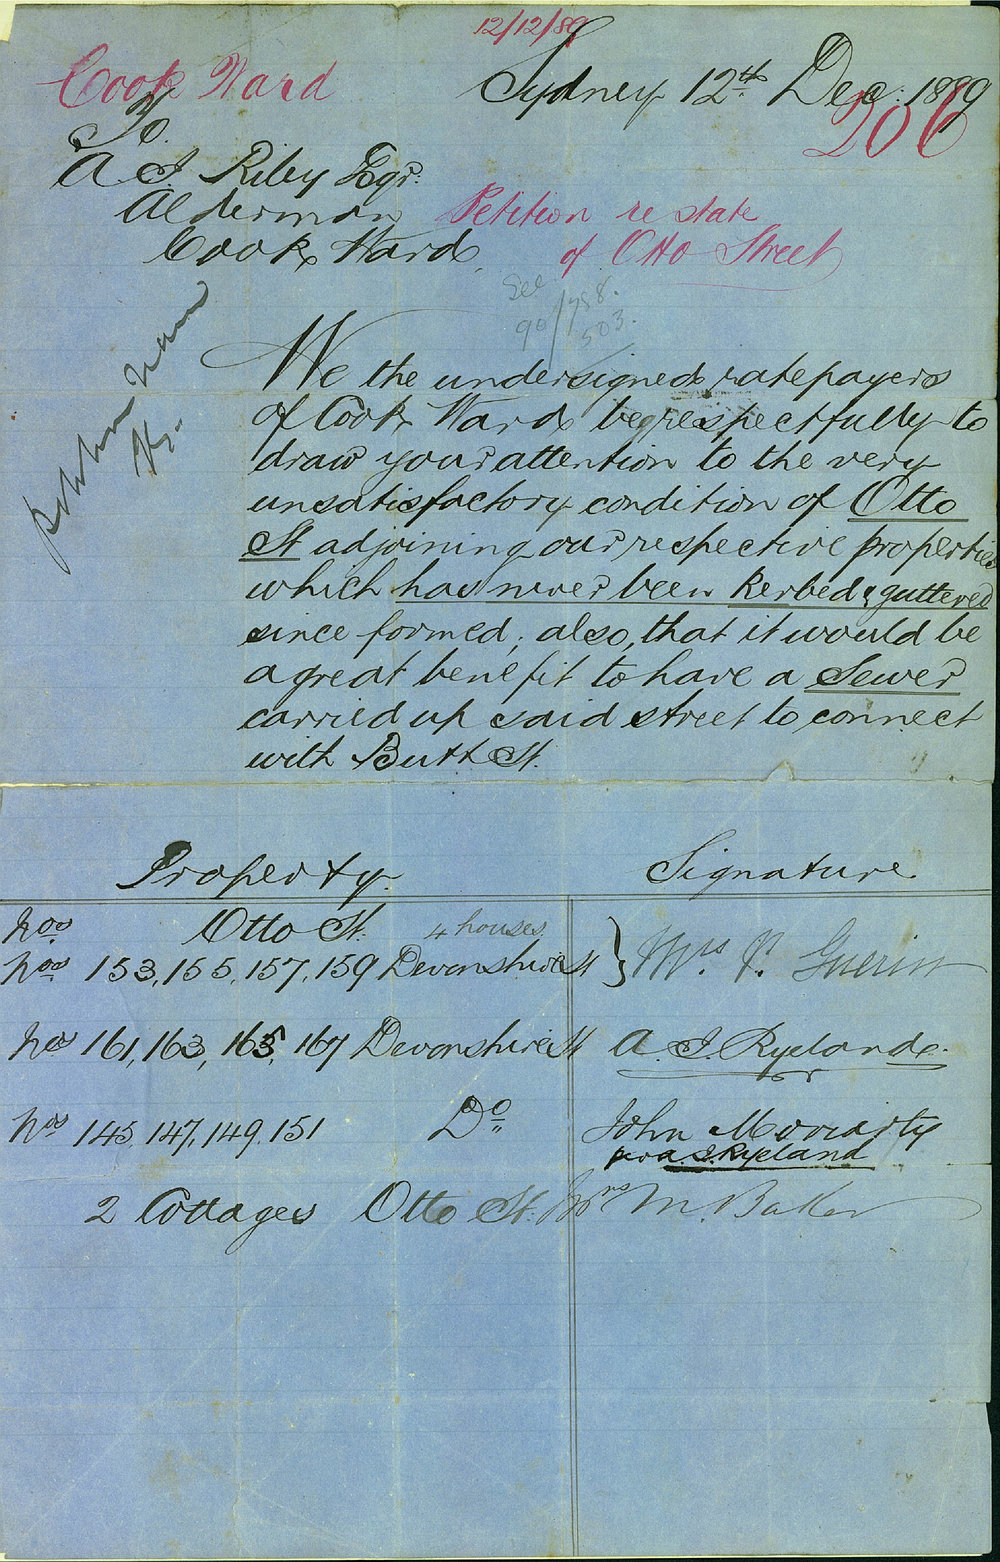 12/12/89
Cook Ward
Sydney 12th Dec: 1889
206
To
A. J. Riley Esqr.
Alderman
Cook Ward.
Petition re state
of Otto Street
See
90/788.
503.
We the undersigned ratepayers
of Cook Ward beg respectfully to
draw your attention to the very
unsatisfactory condition of Otto
St adjoining our respective properties
which has never been Kerbed & guttered
since formed; also, that it would be
a great benefit to have a Sewer
carried up said street to connect
with Butt St.
Property Signature
Nos. Otto St. 4 houses
Nos 153, 155, 157, 159 Devonshire St } Mrs. P. Guerin
Nos 161, 163, 165, 167 Devonshire St A. J. Ryeland
Nos 145, 147, 149, 151 Do. John Moriarty
per A. J. Ryeland
2 Cottages Otto St. Mrs M. Baker